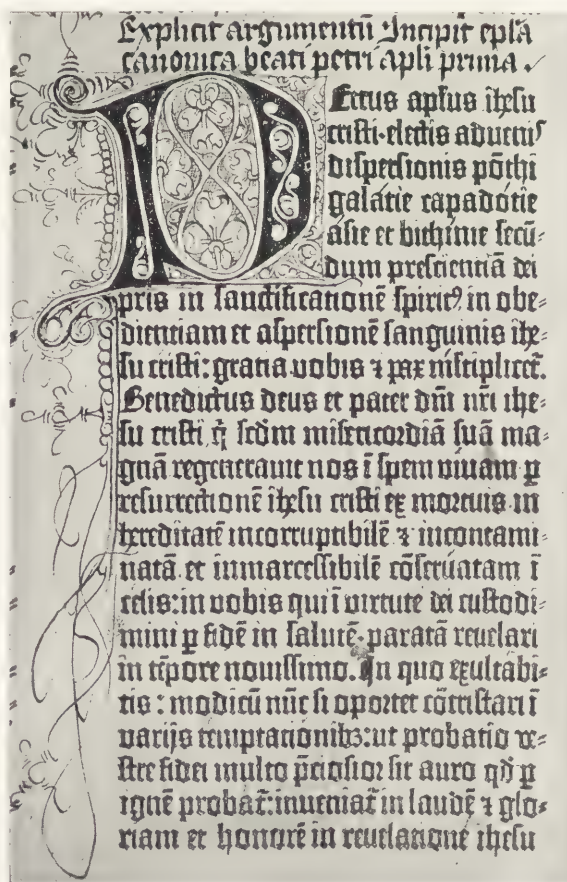 Explicit argumentū Incipit epl̄a
canonica beati petri apl̄i prima.
PEtrus apl̄us ih̄esu
cristi·electis aduenis
dispersionis pōthi
galatie capadotie
asie et bithinie secū⸗
dum prescientiā dei
pris in sanctificationē spiritꝰ in obe⸗
dientiam et aspersionē sanguinis ihe⸗
su cristi: gratia uobis ⁊ pax m̄ltiplicet̄.
Benedictus deus et pater dn̄i nr̄i ihe⸗
su cristi, q̄ scd̄m misericordiā suā ma⸗
gnā regenerauit nos ī spem uiuam ꝑ
resurrectionē ih̄esu cristi ex mortuis in
hereditatē incorruptibilē ⁊ incontami⸗
natā et inmarcessibilē cōseruatam ī
celis: in uobis qui ī uirtute dei custodi⸗
mini ꝑ fidē in salutē·paratā reuelari
in tēpore nouissimo. In quo exultabi⸗
tis: modicū nūc si oportet cōtristari ī
uarijs temptationibꝫ: ut probatio ve⸗
stre fidei multo p̄ciosior sit auro qd̄ ꝑ
ignē probat̄: inueniat̄ in laudē ⁊ glo⸗
riam et honorē in reuelatione ihesu